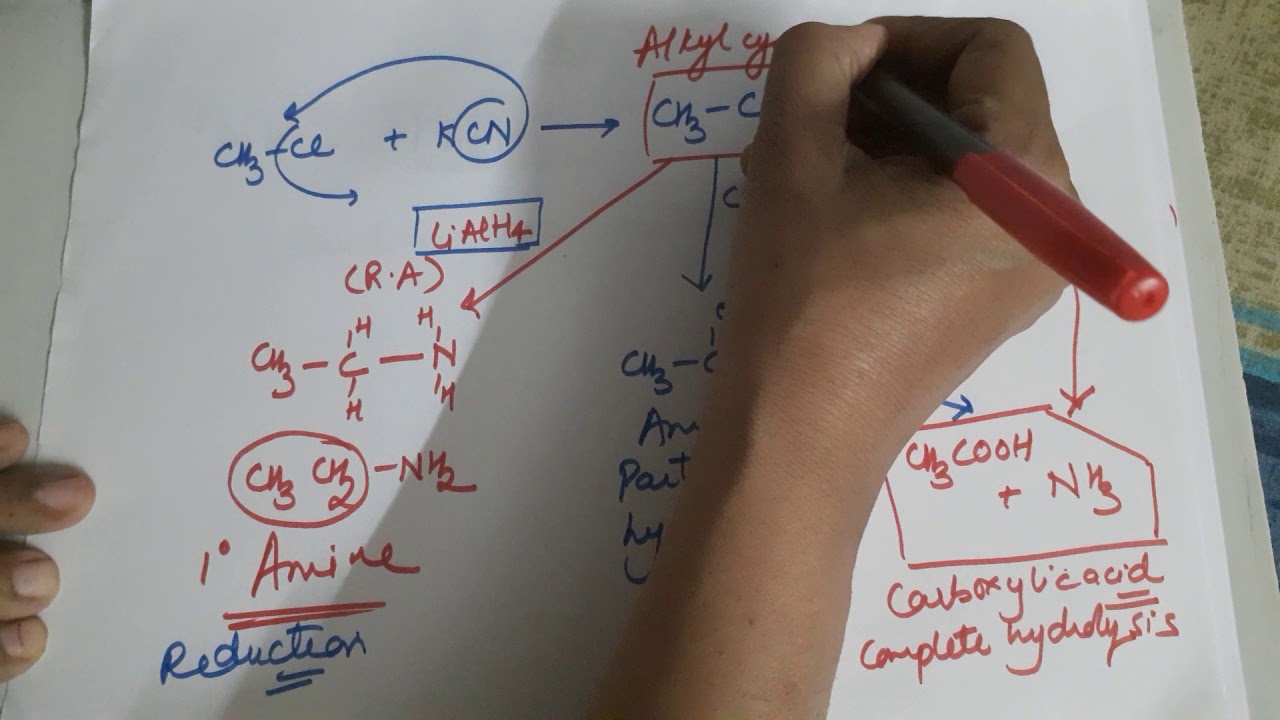 Alkyl
CH3-Cl + KCN
CH3-C
LiAlH4
(R.A)
H H
CH3-C-N
H H
CH3-C
CH3 CH2-NH2
1° Amine
Reduction
CH3COOH
+ NH3
Carboxylic acid
Complete hydrolysis